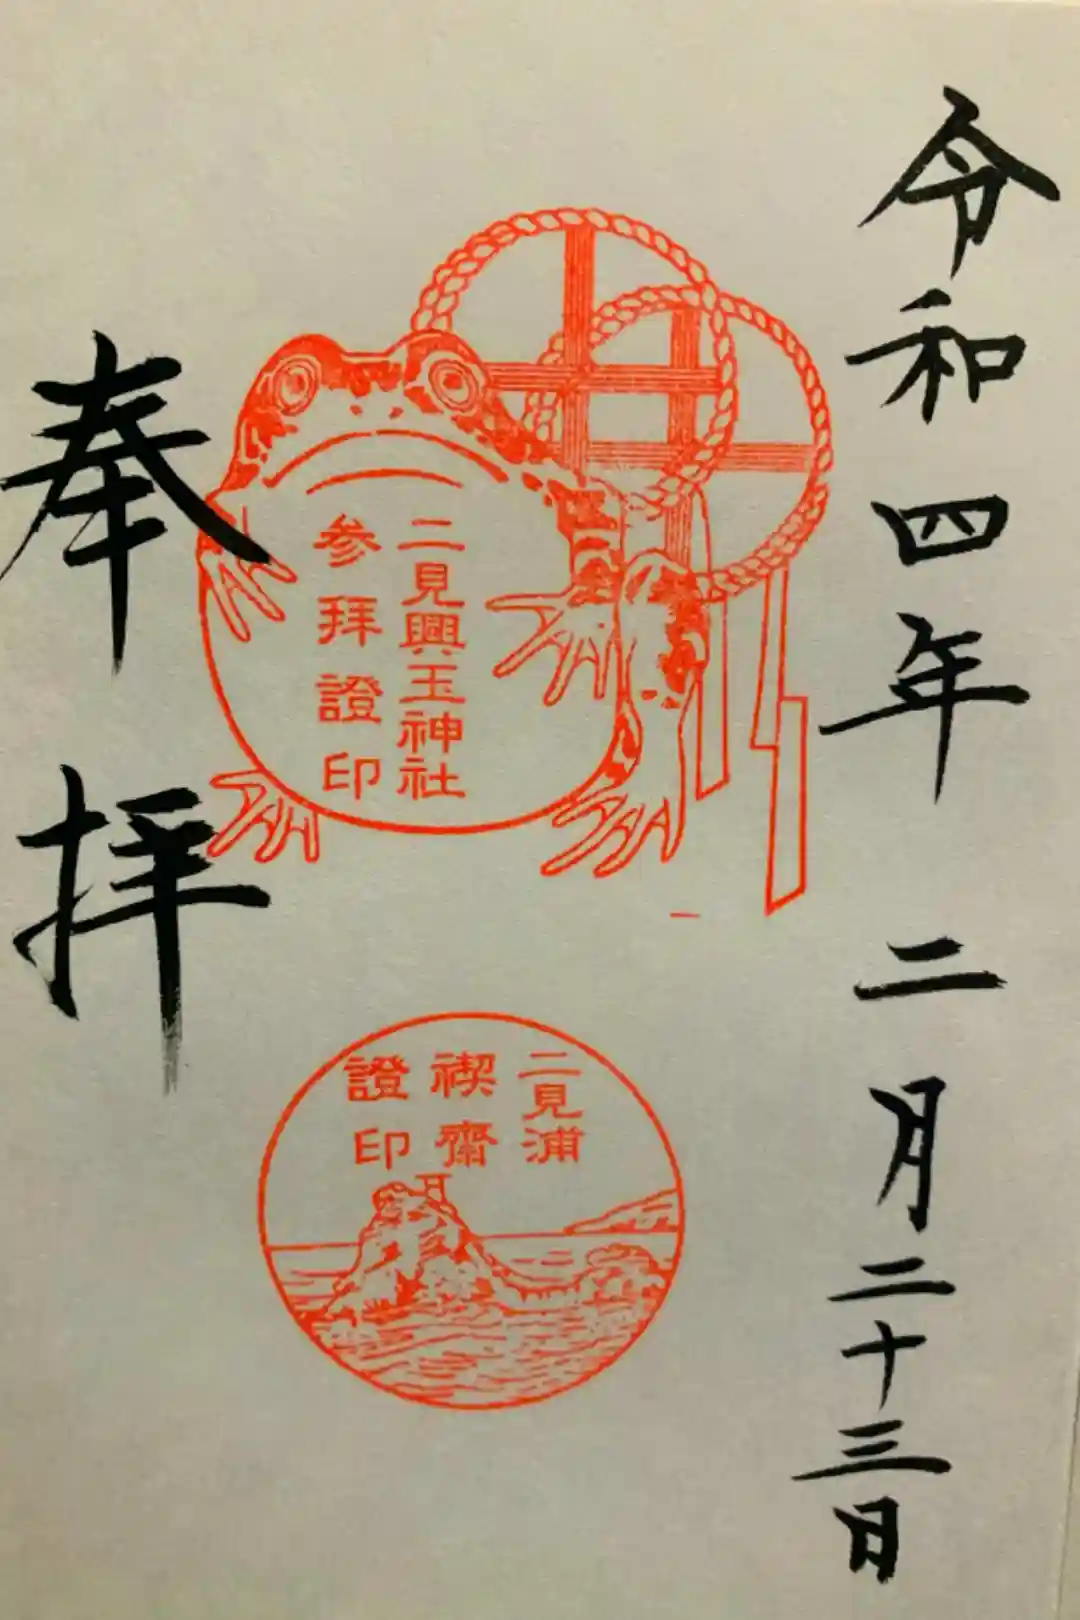 令和四年 二月二十三日
二見興玉神社
参拜證印
奉拝
二見浦
禊齋
證印